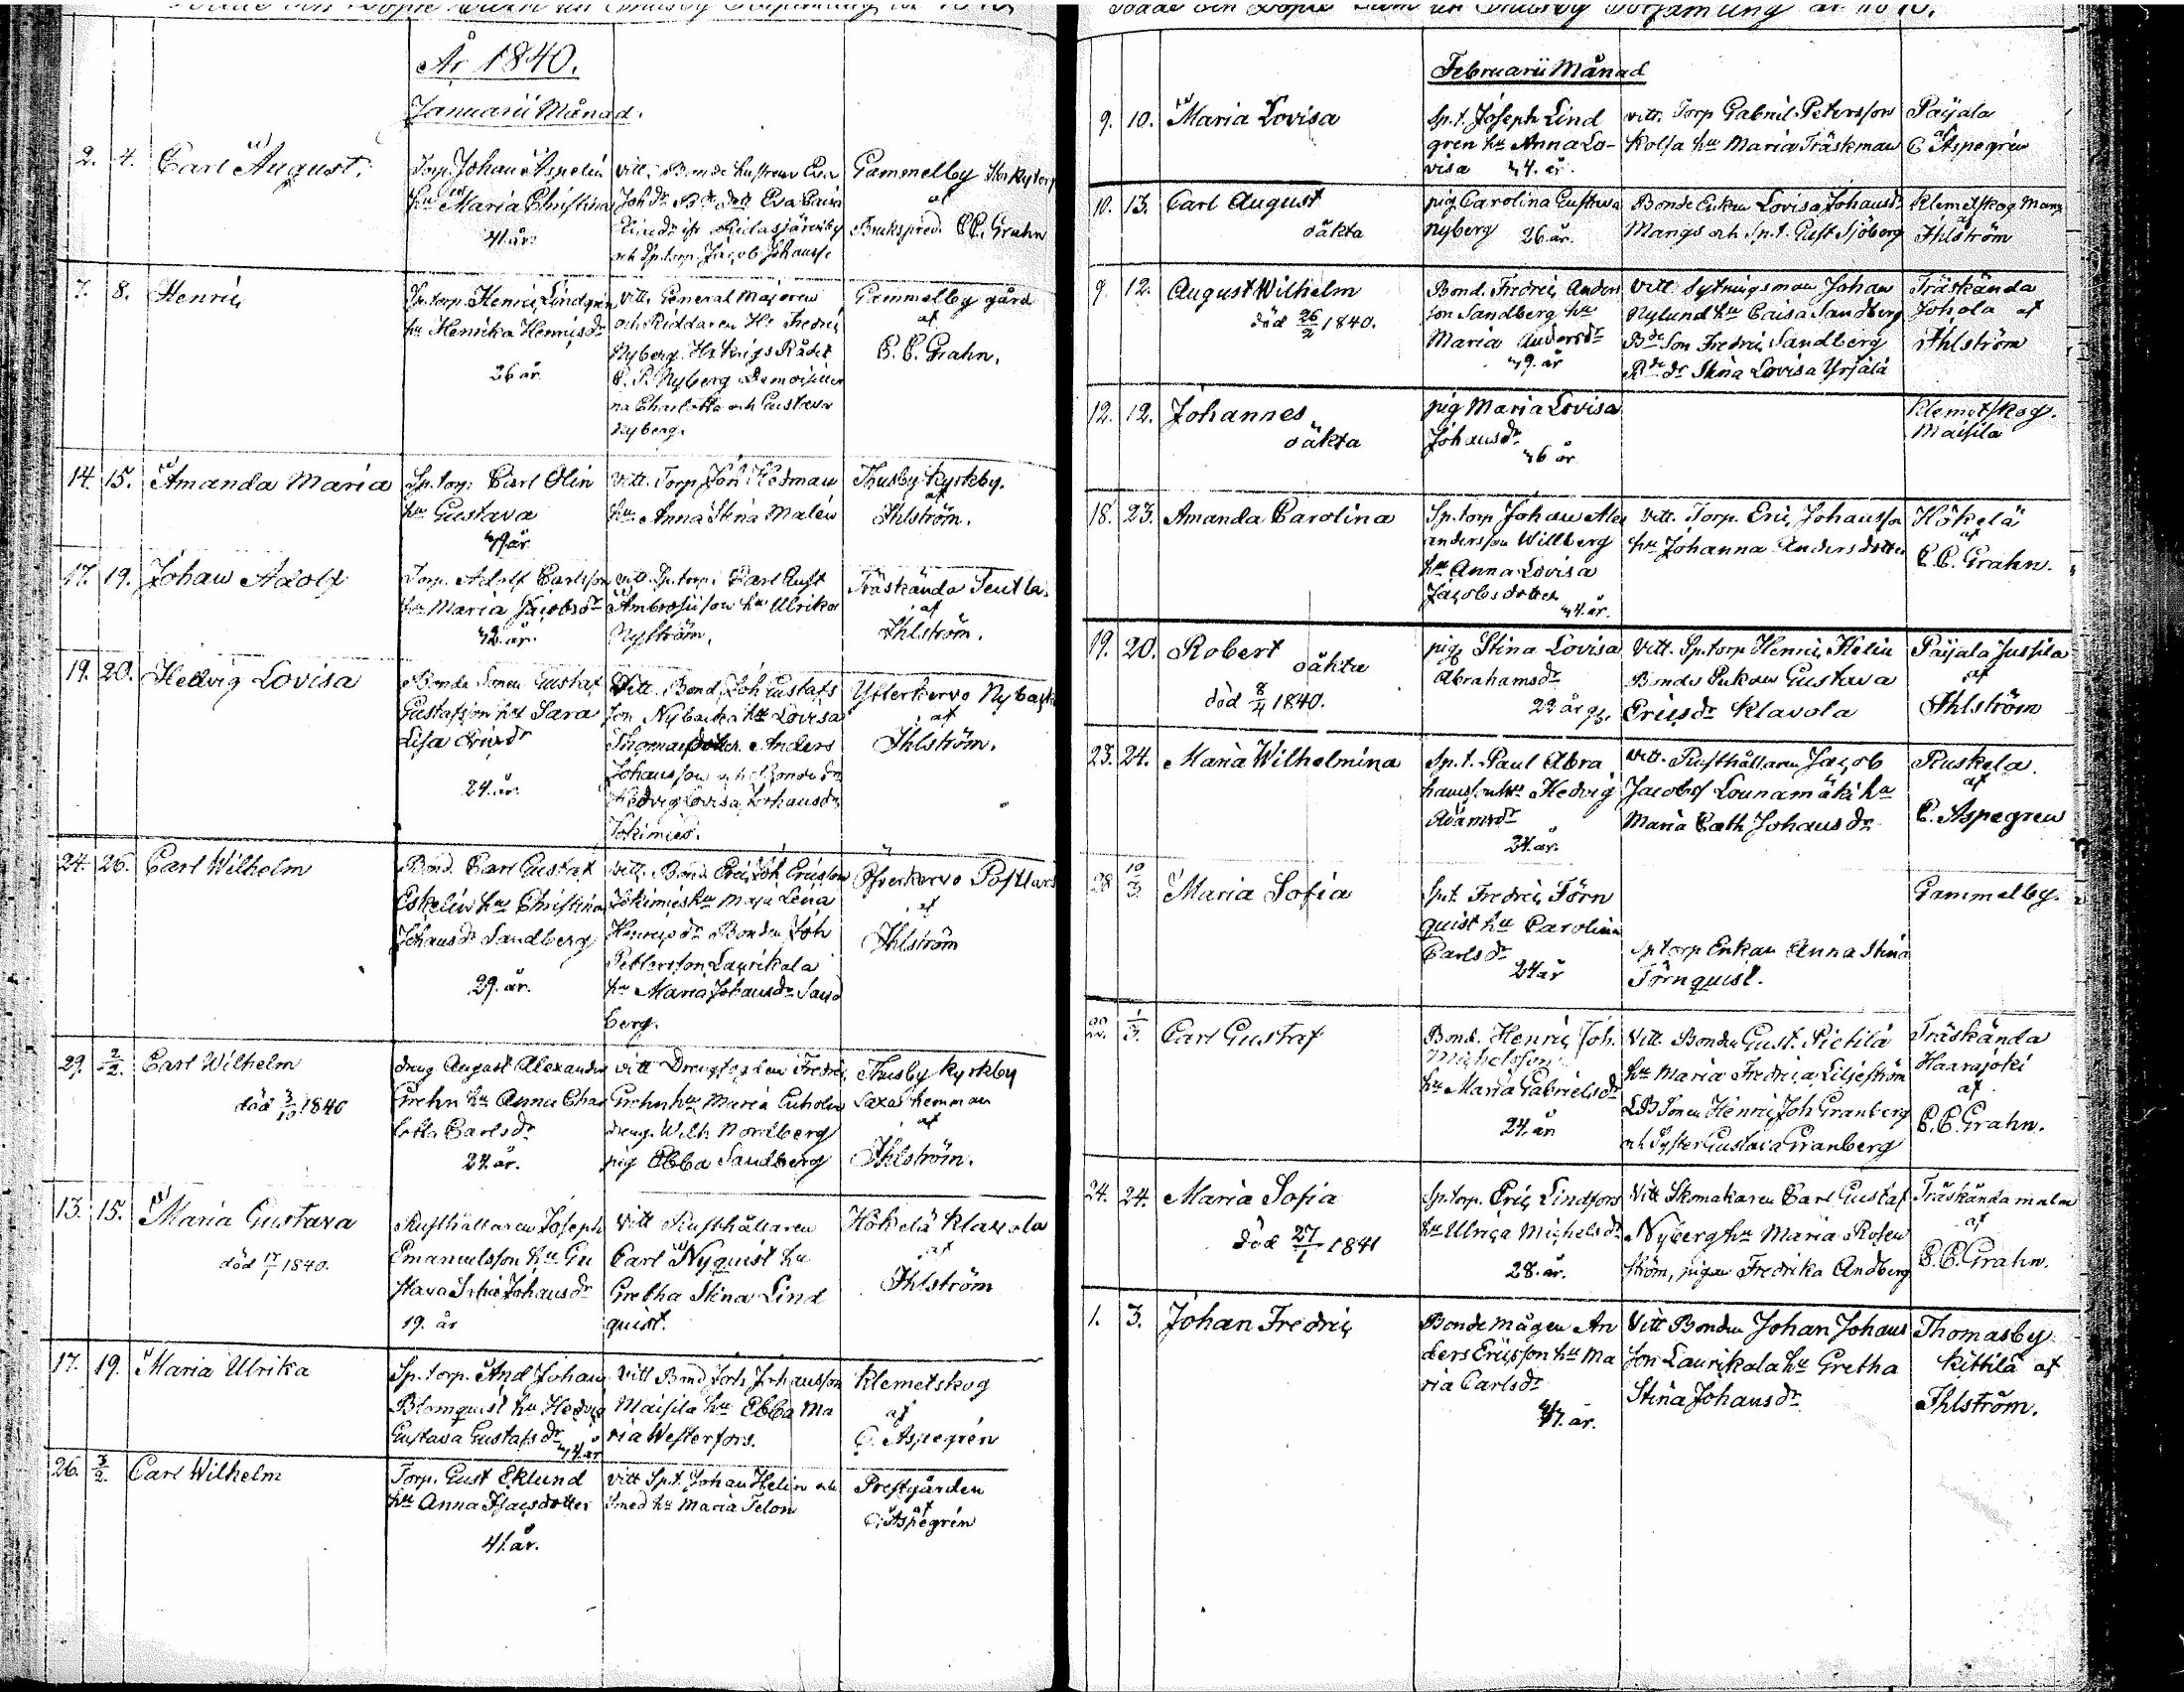 År 1840.
Januarii Månad.
2. 4. Carl August.
Torp. Johan Aspelin
hu Maria Christina
41. år.
vitt. Bonde hustrun Eva
Joh dr Bde dott Eva Caisa
och Sp.torp. Jacob Johanss.
Gammelby
af
Brukspred. C.C. Grahn
7. 8. Henric
Sp.torp. Henric Lindgrén
hu Henrika Henricsdr
26 år
vitt. General Majoren
och Riddaren Hr Fredric
Nyberg. Hr Krigs Rådet
C. P. Nyberg Demoiseller
na Charlotta och Gustava
Nyberg.
Gammelby gård
af
C. C. Grahn.
14. 15. Amanda Maria
Sp.torp. Carl Olin
hu Gustava
vitt. Torp. Joh Hedman
hu Anna Stina Malén
Thusby Kyrkby.
af
Ihlström.
17. 19. Johan Adolf
Torp. Adolf Carlsson
hu Maria Jacobsdr
42. år.
vitt. Sp.torp. Carl Gust
Ambrosiison hu Ulrika
Nyström.
Träskända Seutla
af
Ihlström.
19. 20. Hedvig Lovisa
Bonde Sonen Gustaf
Gustafsson hu Sara
Lisa Ericsdr
24. år.
Vitt. Bond. Joh Gustafs
son Nybacka hu Lovisa
Thomasdotter. Anders
Johansson och Bonde dr
Hedvig Lovisa Johansdr
Jokimies.
Ytterkervo Nybacka
af
Ihlström.
24. 26. Carl Wilhelm
Bond. Carl Gustaf
Eskelin hu Christina
Johansdr Sandberg
29. år.
vitt. Bond. Eric Joh Ericsson
Jokimies hu Maja Lena
Henricsdr Bonden Joh
Pettersson Laurikala
hu Maria Johansdr Sand
berg.
Öfverkervo Postlars
af
Ihlström
29. 2/2. Carl Wilhelm
död 3/10 1840
dreng August Alexander
Grehn hu Anna Char
lotta Carlsdr
24. år.
vitt Drengfogden Fredric
Grehn hu Maria
dreng. Wilh. Nordberg
pig Ebba Sandberg
Thusby Kyrkby
Saxas hemman
af
Ihlström.
13. 15. Maria Gustava
död 17/1 1840.
Rusthållaren Joseph
Emanuelsson hu Gu
stava Sofia Johansdr
19. år
vitt Rusthållaren
Carl Nyquist hu
Gretha Stina Lind
quist.
Hökelä Klavola
af
Ihlström
17. 19. Maria Ulrika
Sp.torp. And Johan
Blomquist hu Hedvig
Gustava Gustafsdr
vitt Bond Joh Johansson
Maisila hu Ebba Ma
ria Westerfors.
Klemetskog
af
C. Aspegrén
26. 3/2. Carl Wilhelm
Torp. Gust Eklund
hu Anna Isacsdotter
41. år.
vitt Sp.t. Johan Helin och
smed hu Maria Telon
Prestgården
af
C. Aspegrén
Februarii Månad
9. 10. Maria Lovisa
Sp.t. Joseph Lind
gren hu Anna Lo-
visa
vitt. Torp Gabriel Petersson
Kolsa hu Maria Träskman
Paijala
af
C Aspegrén
10. 13. Carl August
oäkta
pig. Carolina Gustava
Nyberg 26 år.
Bonde Enkan Lovisa Johansdr
Mangs och Sp.t. Gust Sjöberg
Klemetskog Mangs
af
Ihlström
9. 12. August Wilhelm
död 26/2 1840.
Bond. Fredric Anders
son Sandberg hu
Maria Andersdr
Vitt Sytningsman Johan
Nylund hu Caisa Sandberg
Bde Son Fredric Sandberg
Bde dr Stina Lovisa Yrjälä
Träskända
Johola af
Ihlström
12. 12. Johannes
oäkta
pig Maria Lovisa
Johansdr
Klemetskog.
Maisila
18. 23. Amanda Carolina
Sp.torp Johan Alex
andersson Willberg
hu Anna Lovisa
Jacobsdotter
vitt. Torp. Eric Johansson
hu Johanna Andersdotter
Hökelä
af
C. C. Grahn.
19. 20. Robert
oäkta
död 8/4 1840.
pig. Stina Lovisa
Abrahamsdr
22 år
Vitt. Sp.torp Henric Helin
Bonde Enkan Gustava
Ericsdr Klavola
Paijala Jussila
af
Ihlström
23. 24. Maria Wilhelmina
Sp.t. Paul Abra
hansson hu Hedvig
Adamsdr
24. år.
vitt. Rusthållaren Jacob
Jacobss Lounamäki hu
Maria Cath Johansdr
Ruskela.
af
C. Aspegren
28 10/3. Maria Sofia
Sp.t. Fredric Törn
quist hu Carolina
Carlsdr
24 år
Sp torp Enkan Anna Stina
Törnquist.
Gammelby.
1/3. Carl Gustaf
Bond. Henric Joh.
Michelsson
hu Maria Gabrielsdr
24. år
Vitt. Bonden Gust. Pietilä
hu Maria Fredrica Liljeström
LB Sonen Henric Joh Granberg
och Syster Gustava Granberg
Träskända
Haarajoki
af
C. C. Grahn.
24. 24. Maria Sofia
död 27/1 1841
Sp.torp. Eric Lindfors
hu Ulrica Michelsdr
28. år.
Vitt Skomakaren Carl Gustaf
Nyberg hu Maria Rosen
ström, pigan Fredrika Andberg
Träskända malm
af
C. C. Grahn.
1. 3. Johan Fredric
Bondemågen An
ders Ericsson hu Ma
ria Carlsdr
Vitt Bonden Johan Johans
son Laurikala hu Gretha
Stina Johansdr
Thomasby
Kittilä af
Ihlström.